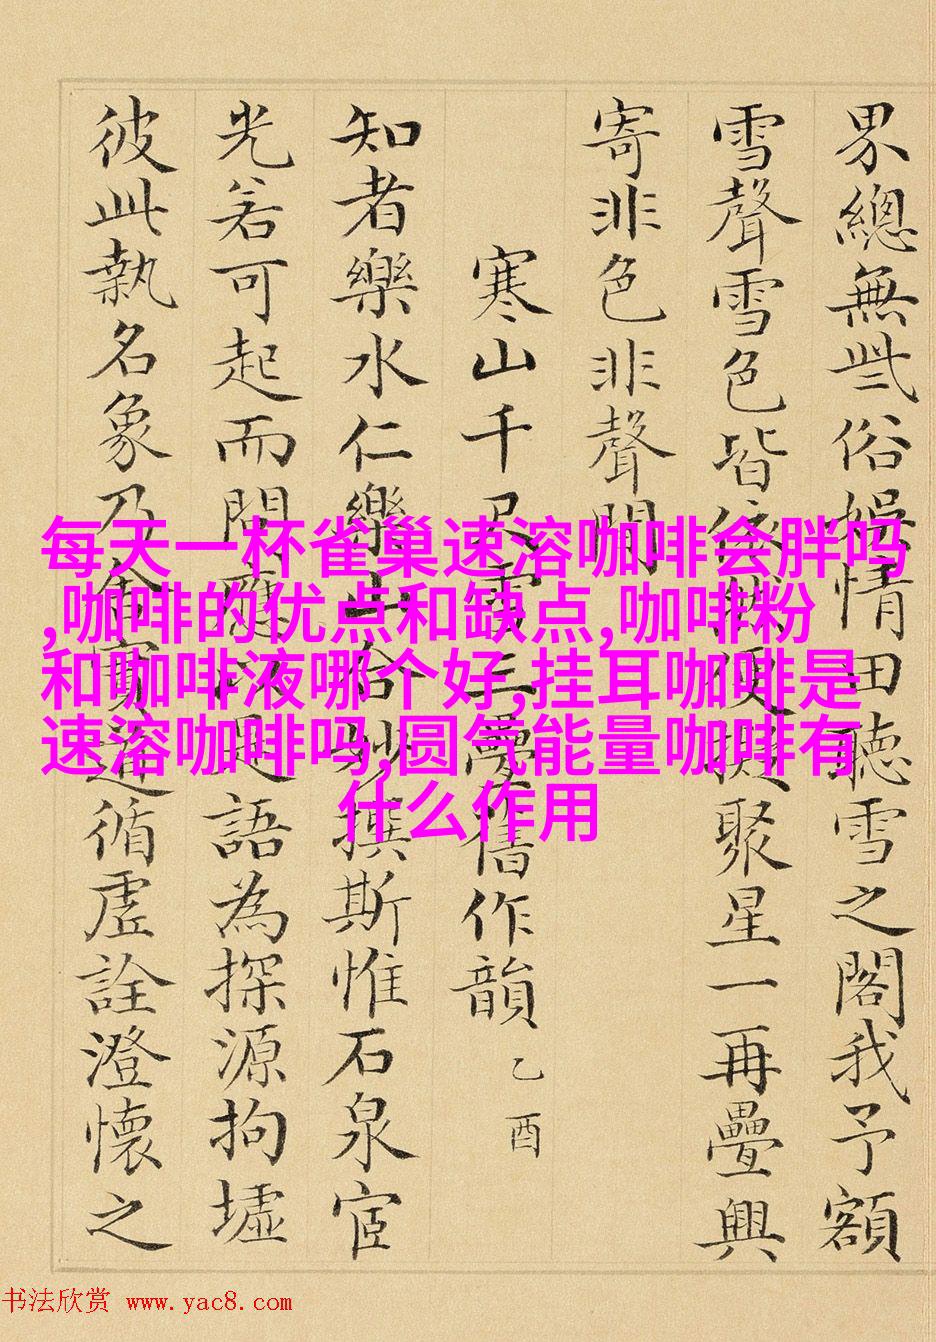 界總無些俗情田聽雪之閣我予額
雪聲雪色皆依然便擬聚星一再疊興
寄非色非聲間
寒山千尺雪三疊舊作韻 乙酉
知者樂水仁樂山合妙撰斯惟石泉宦
光若可起而問應以是語為探源拘墟
彼此執名象乃舍實逐循虛詮澄懷之
每天一杯雀巢速溶咖啡会胖吗
,咖啡的优点和缺点,咖啡粉
和咖啡液哪个好,挂耳咖啡是
速溶咖啡吗,圆气能量咖啡有
什么作用
书法欣赏 www.yac8.com